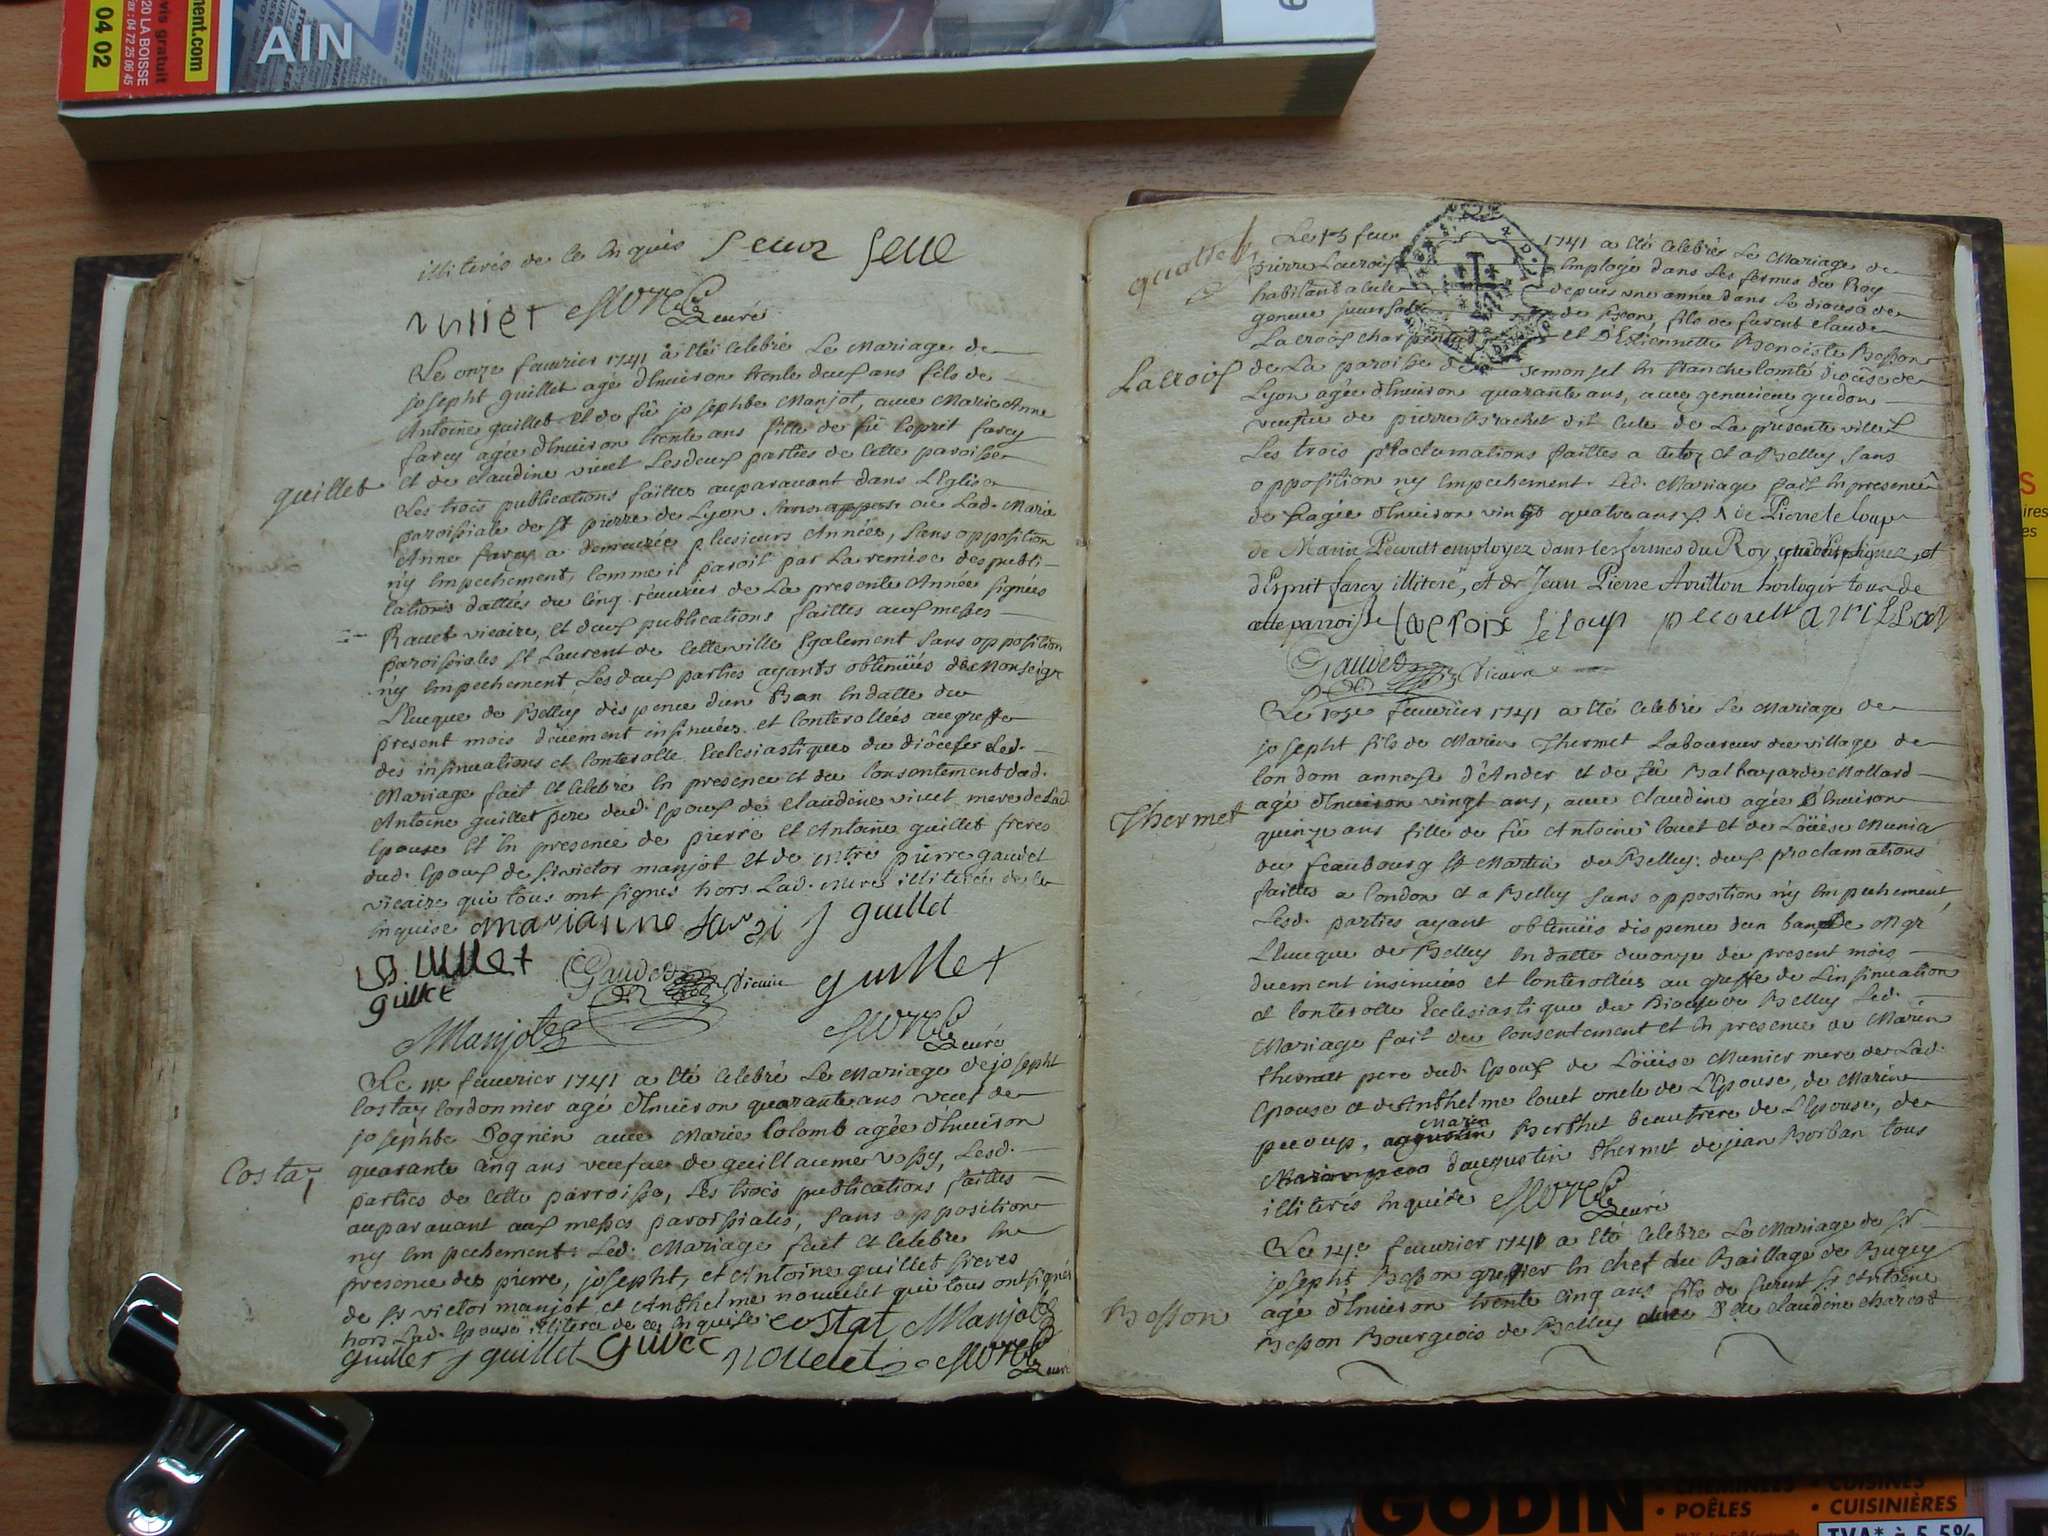 nent.com
04 02
vis gratuit
20 LA BOISSE
Fax : 04 72 25 06 45
AIN
9
illiterés de ce Enquis
curé
Le onze feuurier 1741 a été Celebré Le Mariage de
josepht guillet agé d'Enuiron trente deux ans fils de
Antoine guillet et de füe josephte Manjot, auec Marie Anne
farcy agée d'Enuiron trente ans fille de fü Esprit farcy
guillet
et de claudine viuet Lesdeux parties de Cette paroisse
Les trois publications faittes auparauant dans L'Eglise
paroissiale de St pierre de Lyon ou Lad. Marie
Anne farcy a demeurée plusieurs Années, sans opposition
n'y Empechement, Comme il paroit par La remise des publi-
cations dattées du Cinq feuurier de La presente Année signées
Rauet vicaire, et deux publications faittes aux messes
paroissiales St Laurent de Cette ville Egalement sans opposition
n'y Empechement, Les deux parties ayants obtenüés de Monseigr
L'Eueque de Belley dispence d'un Ban En datte du
present mois düement insinuées et Conterollées au greffe
des insinuations et Conterolle Ecclesiastiques du diocese Led.
Mariage fait et Celebré En presence et du Consentement dud.
Antoine guillet pere dud. Epoux de Claudine viuet mere de Lad
Epouse Et En presence de pierre et Antoine guillet freres
dud. Epoux de sr victor manjot et de mtre pierre gaudet
vicaire qui tous ont signés hors Lad. mere illiterée de ce
Enquise marianne farsi J guillet
guillet
Gaudet Vicaire
guillet
Manjot
curé
Le 11e feuurier 1741 a été Celebré Le Mariage de josepht
Costaz Cordonnier agé d'Enuiron quarante ans veuf de
josephte Dognin auec Marie Colomb agée d'Enuiron
Costaz
quarante Cinq ans veufue de guillaume Lesd.
parties de Cette parroisse, Les trois publications faittes
auparauant aux messes paroissiales, sans opposition
ny Empechement. Led. Mariage fait et Celebré En
presence des pierre, josepht, et Antoine guillet freres
de Sr victor manjot et Anthelme nouuelet qui tous ont signés
hors Lad. Epouse illiterée de ce Enquise costat Manjot
guillet J guillet nouelet curé
quatre
Le 13 feu 1741 a été Celebré Le Mariage de
pierre Lacroix Employé dans Les fermes du Roy
habitant a depuis une année dans Le diocese de
geneue fils de furent claude
Lacroix char et D'Etiennette Benoiste Besson
Lacroix
de La paroisse de En franche Comté diocèse de
Lyon agée d'Enuiron quarante ans, auec geneuieue gudon
veufue de pierre Brachet dit de La presente ville
Les trois proclamations faittes a et a Belley sans
opposition ny Empechement. Led. Mariage fait En presence
de Pierre le loup
de Marin Pecoult employez dans les fermes du Roy, et
d'Esprit farcy illiteré, et de Jean Pierre Avrillon horloger tous de
cette parroisse Lacroix Leloup pecoult avrillon
Gaudet Vicaire
Le 13e feuurier 1741 a été Celebré Le Mariage de
josepht fils de Marin Thermet Laboureur du village de
London annexe d'Ander et de fü Balthazarde Mollard
Thermet
agé d'Enuiron vingt ans, auec Claudine agée d'Enuiron
quinze ans fille de fü Antoine Couet et de Loüise Munier
du feaubourg St Martin de Belley. deux proclamations
faittes a London et a Belley sans opposition n'y Empechement,
Lesd. parties ayant obtenüés dispence d'un ban de Mgr
L'Eueque de Belley En datte du onze du present mois
duement insinuées et Conterollées au greffe de L'insinuation
et Conterolle Ecclesiastique du Diocese de Belley Led.
Mariage fait du Consentement et En presence de Marin
thermet pere dud. Epoux de Loüise Munier mere de Lad.
Epouse et de Anthelme Couet oncle de L'Epouse, de Marin
pecoup, Marin Berthet beaufrere de L'Epouse, de
d'augustin thermet de jean Borban tous
illiterés Enquise curé
Le 14e feuurier 1741 a été Celebré Le Mariage de Sr
josepht Besson greffier En chef du Baillage de Bugey
Besson
agé d'Enuiron trente Cinq ans fils de furent Sr Antoine
Besson Bourgeois de Belley et de Dlle Claudine charcot
S
ires
GODIN
• CHEMINÉES
• POÊLES
• CUISINES
• CUISINIÈRES
TVA* à 5,5%